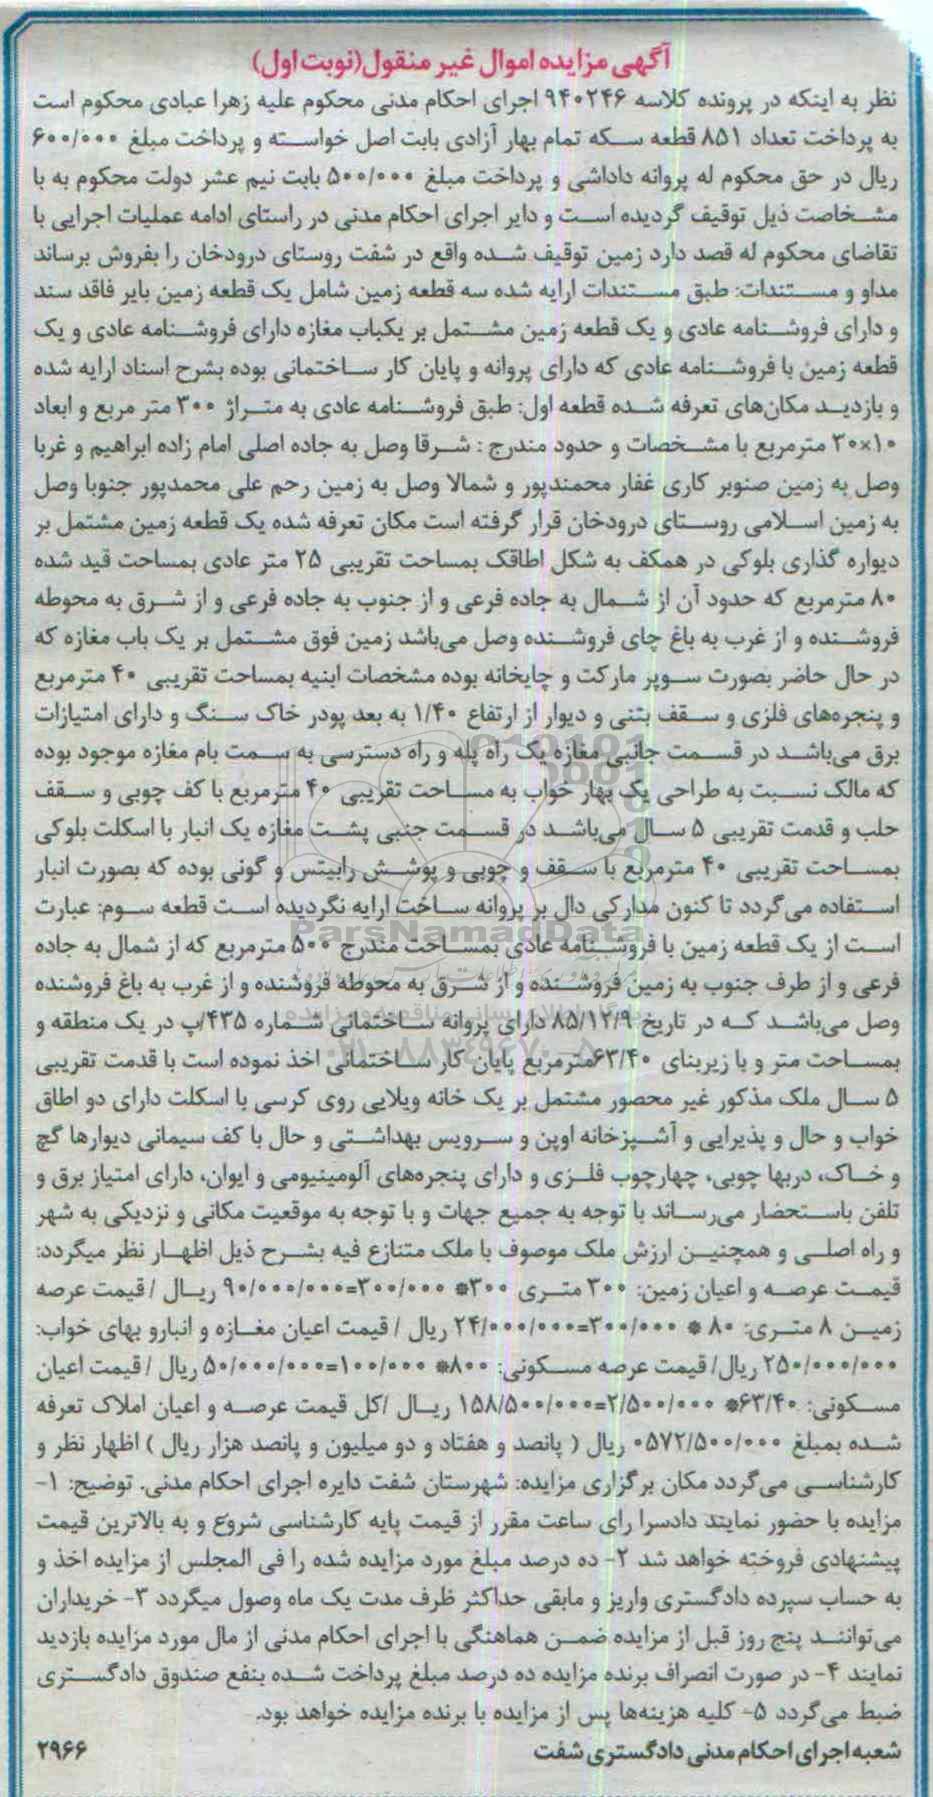 آگهی مزایده اموال غیر منقول(نوبت اول)
نظر به اینکه در پرونده کلاسه ۹۴۰۲۴۶ اجرای احکام مدنی محکوم علیه زهرا عبادی محکوم است
به پرداخت تعداد ۸۵۱ قطعه سکه تمام بهار آزادی بابت اصل خواسته و پرداخت مبلغ ۶۰۰/۰۰۰
ریال در حق محکوم له پروانه داداشی و پرداخت مبلغ ۵۰۰/۰۰۰ بابت نیم عشر دولت محکوم به با
مشخاصت ذیل توقیف گردیده است و دایر اجرای احکام مدنی در راستای ادامه عملیات اجرایی با
تقاضای محکوم له قصد دارد زمین توقیف شده واقع در شفت روستای درودخان را بفروش برساند
مداو و مستندات: طبق مستندات ارایه شده سه قطعه زمین شامل یک قطعه زمین بایر فاقد سند
و دارای فروشنامه عادی و یک قطعه زمین مشتمل بر یکباب مغازه دارای فروشنامه عادی و یک
قطعه زمین با فروشنامه عادی که دارای پروانه و پایان کار ساختمانی بوده بشرح اسناد ارایه شده
و بازدید مکان‌های تعرفه شده قطعه اول: طبق فروشنامه عادی به متراژ ۳۰۰ متر مربع و ابعاد
۳۰×۱۰ مترمربع با مشخصات و حدود مندرج : شرقا وصل به جاده اصلی امام زاده ابراهیم و غربا
وصل به زمین صنوبر کاری غفار محمندپور و شمالا وصل به زمین رحم علی محمدپور جنوبا وصل
به زمین اسلامی روستای درودخان قرار گرفته است مکان تعرفه شده یک قطعه زمین مشتمل بر
دیواره گذاری بلوکی در همکف به شکل اطاقک بمساحت تقریبی ۲۵ متر عادی بمساحت قید شده
۸۰ مترمربع که حدود آن از شمال به جاده فرعی و از جنوب به جاده فرعی و از شرق به محوطه
فروشنده و از غرب به باغ چای فروشنده وصل می‌باشد زمین فوق مشتمل بر یک باب مغازه که
در حال حاضر بصورت سوپر مارکت و چایخانه بوده مشخصات ابنیه بمساحت تقریبی ۴۰ مترمربع
و پنجره‌های فلزی و سقف بتنی و دیوار از ارتفاع ۱/۴۰ به بعد پودر خاک سنگ و دارای امتیازات
برق می‌باشد در قسمت جانبی مغازه یک راه پله و راه دسترسی به سمت بام مغازه موجود بوده
که مالک نسبت به طراحی یک بهار خواب به مساحت تقریبی ۴۰ مترمربع با کف چوبی و سقف
حلب و قدمت تقریبی ۵ سال می‌باشد در قسمت جنبی پشت مغازه یک انبار با اسکلت بلوکی
بمساحت تقریبی ۴۰ مترمربع با سقف و چوبی و پوشش رابیتس و گونی بوده که بصورت انبار
استفاده می‌گردد تا کنون مدارکی دال بر پروانه ساخت ارایه نگردیده است قطعه سوم: عبارت
است از یک قطعه زمین با فروشنامه عادی بمساحت مندرج ۵۰۰ مترمربع که از شمال به جاده
فرعی و از طرف جنوب به زمین فروشنده و از شرق به محوطه فروشنده و از غرب به باغ فروشنده
وصل می‌باشد که در تاریخ ۸۵/۱۲/۹ دارای پروانه ساختمانی شماره ۴۳۵/پ در یک منطقه و
بمساحت متر و با زیربنای ۶۳/۴۰مترمربع پایان کار ساختمانی اخذ نموده است با قدمت تقریبی
۵ سال ملک مذکور غیر محصور مشتمل بر یک خانه ویلایی روی کرسی با اسکلت دارای دو اطاق
خواب و حال و پذیرایی و آشپزخانه اوپن و سرویس بهداشتی و حال با کف سیمانی دیوارها گچ
و خاک، دربها چوبی، چهارچوب فلزی و دارای پنجره‌های آلومینیومی و ایوان، دارای امتیاز برق و
تلفن باستحضار می‌رساند با توجه به جمیع جهات و با توجه به موقعیت مکانی و نزدیکی به شهر
و راه اصلی و همچنین ارزش ملک موصوف با ملک متنازع فیه بشرح ذیل اظهار نظر میگردد:
قیمت عرصه و اعیان زمین: ۳۰۰ متری ۳۰۰* ۳۰۰/۰۰۰=۹۰/۰۰۰/۰۰۰ ریال / قیمت عرصه
زمین ۸ متری: ۸۰ * ۳۰۰/۰۰۰=۲۴/۰۰۰/۰۰۰ ریال / قیمت اعیان مغازه و انبارو بهای خواب:
۲۵۰/۰۰۰/۰۰۰ ریال/ قیمت عرصه مسکونی: ۸۰۰* ۱۰۰/۰۰۰=۵۰/۰۰۰/۰۰۰ ریال / قیمت اعیان
مسکونی: ۶۳/۴۰* ۲/۵۰۰/۰۰۰=۱۵۸/۵۰۰/۰۰۰ ریال /کل قیمت عرصه و اعیان املاک تعرفه
شده بمبلغ ۰۵۷۲/۵۰۰/۰۰۰ ریال ( پانصد و هفتاد و دو میلیون و پانصد هزار ریال ) اظهار نظر و
کارشناسی می‌گردد مکان برگزاری مزایده: شهرستان شفت دایره اجرای احکام مدنی. توضیح: ۱-
مزایده با حضور نمایند دادسرا رای ساعت مقرر از قیمت پایه کارشناسی شروع و به بالاترین قیمت
پیشنهادی فروخته خواهد شد ۲- ده درصد مبلغ مورد مزایده شده را فی المجلس از مزایده اخذ و
به حساب سپرده دادگستری واریز و مابقی حداکثر ظرف مدت یک ماه وصول میگردد ۳- خریداران
می‌توانند پنج روز قبل از مزایده ضمن هماهنگی با اجرای احکام مدنی از مال مورد مزایده بازدید
نمایند ۴- در صورت انصراف برنده مزایده ده درصد مبلغ پرداخت شده بنفع صندوق دادگستری
ضبط می‌گردد ۵- کلیه هزینه‌ها پس از مزایده با برنده مزایده خواهد بود.
شعبه اجرای احکام مدنی دادگستری شفت ۲۹۶۶
ParsNamadData